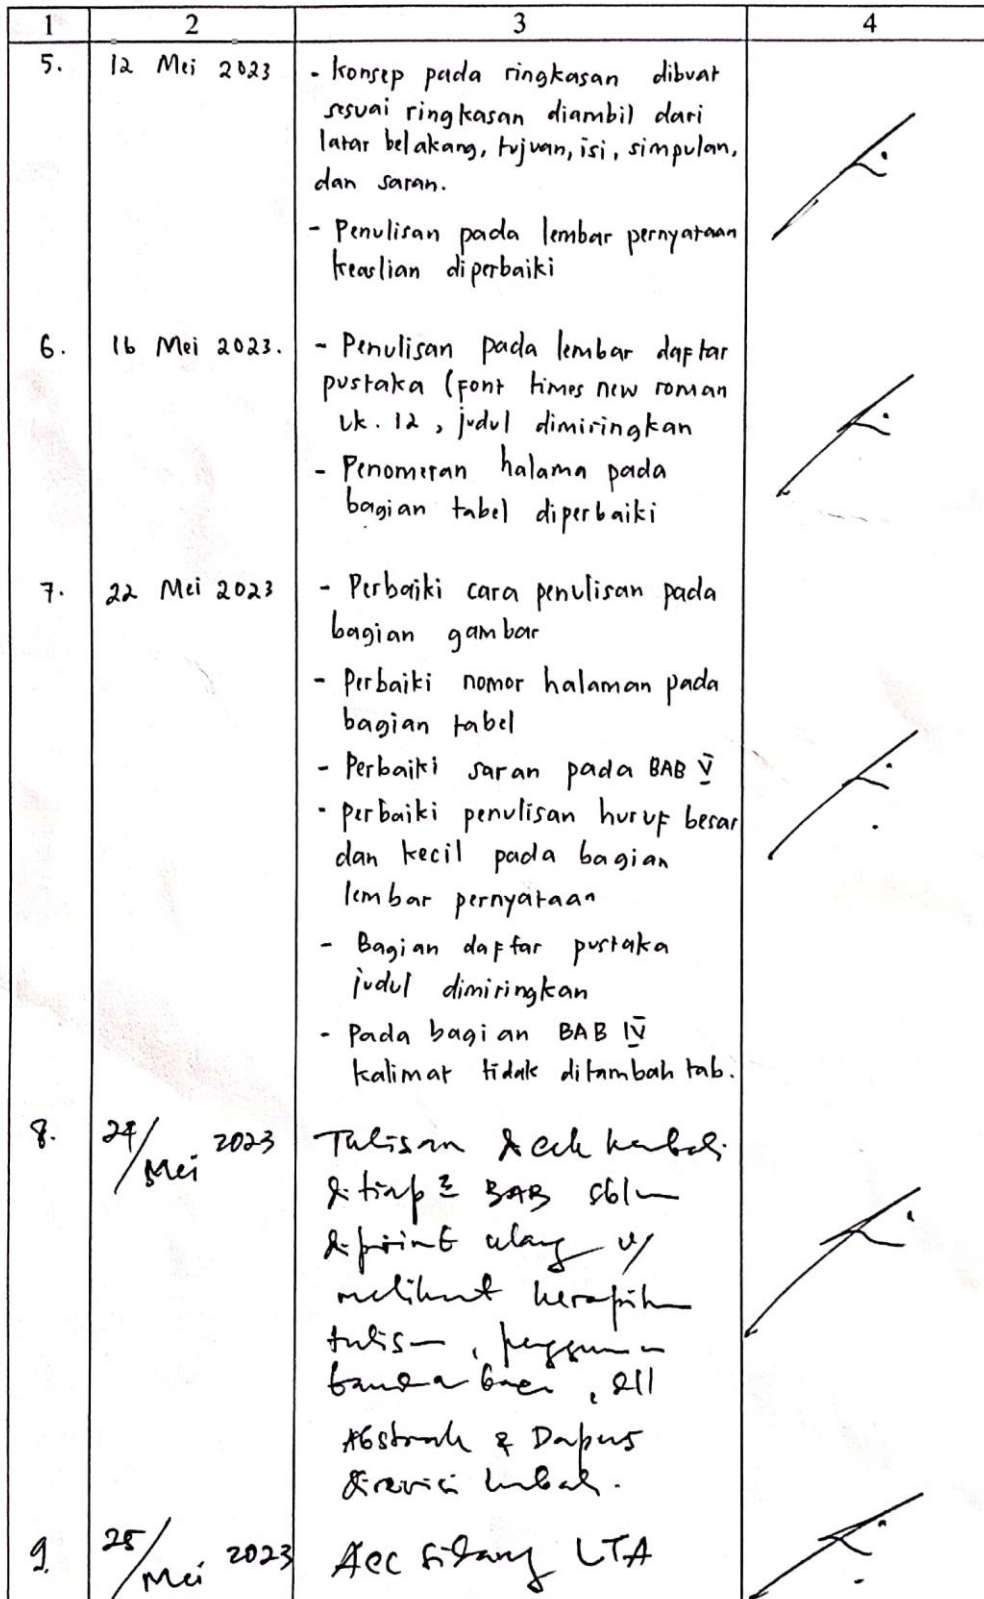 1 2 3 4
5. 12 Mei 2023 - konsep pada ringkasan dibuat
sesuai ringkasan diambil dari
latar belakang, tujuan, isi, simpulan,
dan saran.
- Penulisan pada lembar pernyataan
keaslian diperbaiki
6. 16 Mei 2023. - Penulisan pada lembar daftar
pustaka (font times new roman
uk. 12, judul dimiringkan
- Penomeran halama pada
bagian tabel diperbaiki
7. 22 Mei 2023 - Perbaiki cara penulisan pada
bagian gambar
- Perbaiki nomor halaman pada
bagian tabel
- Perbaiki saran pada BAB V
- perbaiki penulisan huruf besar
dan kecil pada bagian
lembar pernyataan
- Bagian daftar pustaka
judul dimiringkan
- Pada bagian BAB IV
kalimat tidak ditambah tab.
8. 24/Mei 2023 Tulisan dicek kembali
ditiap2 BAB sblm
diprint ulang u/
melihat kerapihan
tulisan, penggunaan
tanda baca, dll
Abstrak & Dapus
direvisi kembali.
9. 25/Mei 2023 Acc sidang LTA